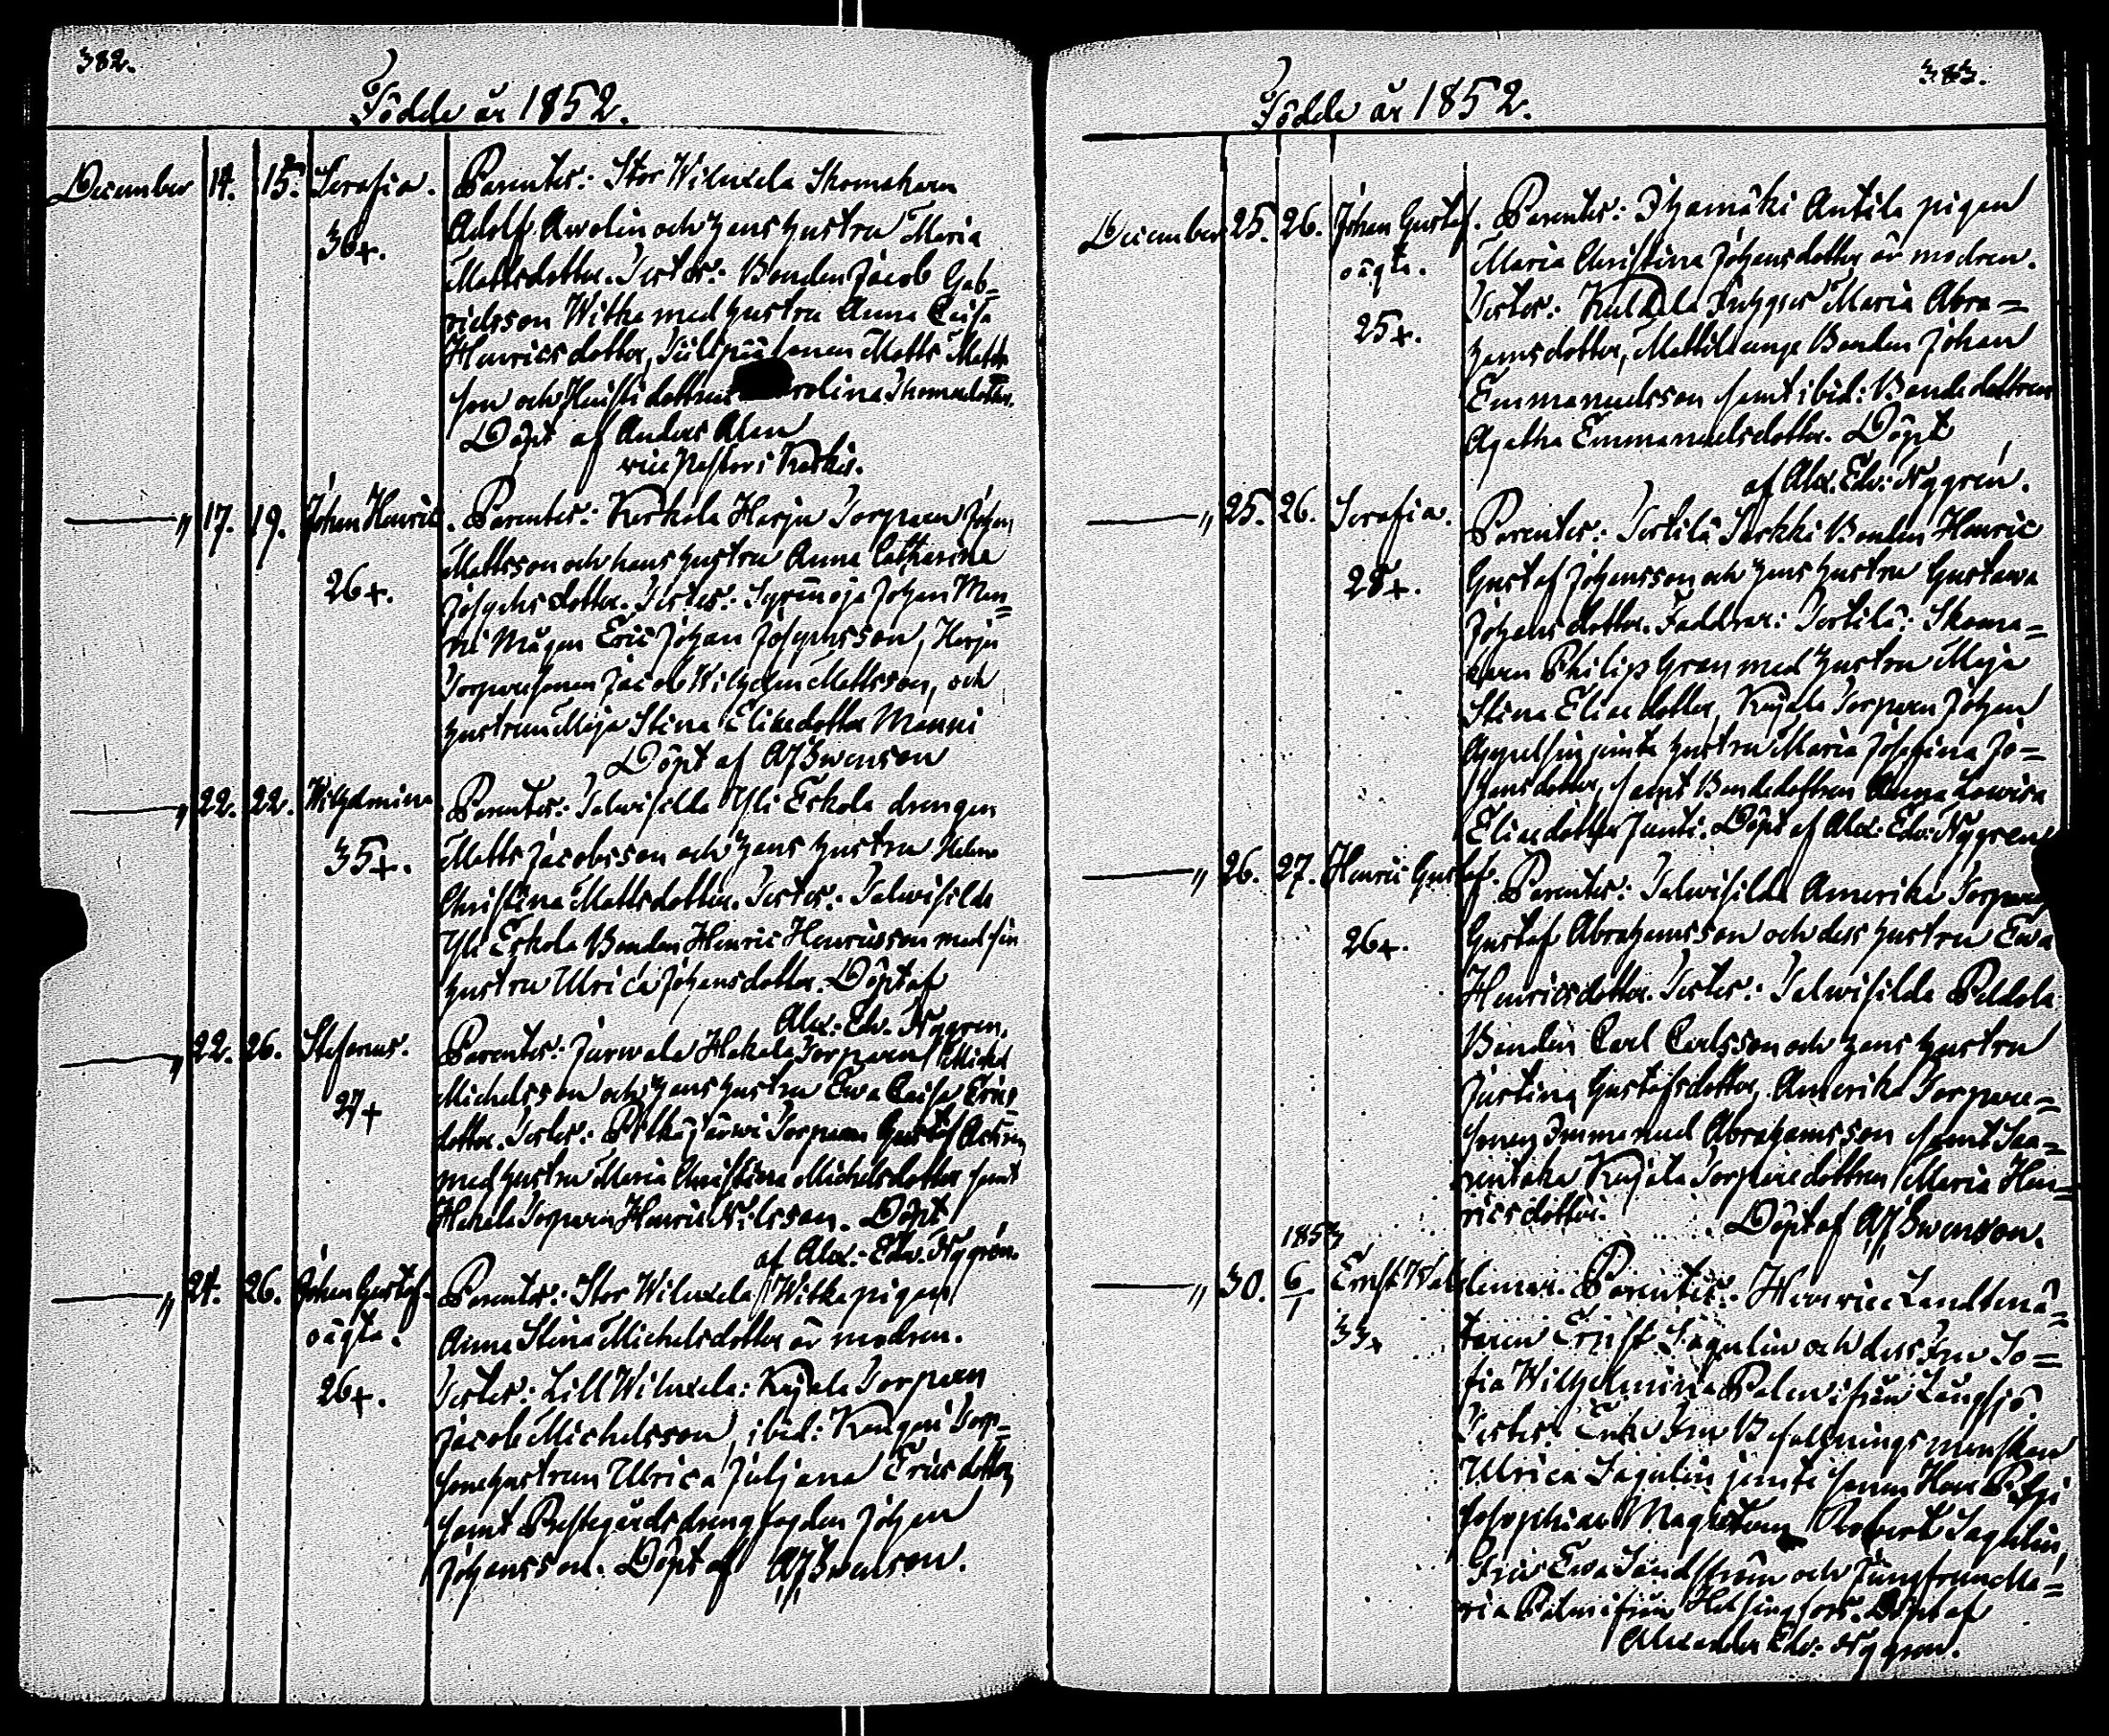 382.
Födde år 1852.
December 14. 15. Serafia. Parentes: Stor Wiluxela Skomakaren
36+. Adolf Awolin och hans hustru Maria
Mattsdotter. Testes: Bonden Jacob Gab=
rielsson Witka med hustru Anna Caisa
Henricsdotter, sonen Matts Matts
son och dottren rolina Thomasdotter.
Döpt af Anders Alen
vice Pastor i Karkis.
— " 17. 19. Johan Henric. Parentes: Karkola Harju Torparen Johan
Mattsson och hans hustru Anna Catharina
26+. Josephsdotter. Testes: Syrjänoja Johan Man=
ni Mågen Eric Johan Josephsson, Harju
Torparesonen Jacob Wilhelm Mattsson, och
hustrun Maja Stina Eliaedotter Manni
Döpt af AJSwenson
— " 22. 22. Wilhelmina Parentes: Salwisilda Yli Eskola drengen
35+. Matts Jacobsson och hans hustru Helena
Christina Mattsdotter. Testes: Salwisilda
Yli Eskola Bonden Henric Henricsson med sin
hustru Ulrica Johansdotter. Döpt af
Alex: Edv. Nygren.
— " 22. 26. Stefanus. Parentes: Jarwala Hakala Torparen Michel
27+ Michelsson och hans hustru Ewa Caisa Erics
dotter. Testes: Pitkäjärwi Torparen Gustaf
med hustru Maria Christina Michelsdotter samt
Hakala Torparen Henric Nilsson. Döpt
af Alex: Edw. Nygrén.
— " 24. 26. Johan Gustaf. Parentes: Stor Wiluxela Witka pigan
oägta. Anna Stina Michelsdotter är modren.
26+. Testes: Lill Wiluxela: Kujala Torparen
Jacob Michelsson, ibid: Kangari Torp=
sonehustrun Ulrica Juljana Ericsdotter
samt Prestegårds drengfogden Johan
Johansson. Döpt af AJSwenson.
383.
Födde år 1852.
December 25. 26. Johan Gustaf. Parentes: Ihamäki Antila pigan
oägta. Maria Christina Johansdotter är modren.
25+. Testes: Kulkkila Maria Abra=
hamsdotter, Mattila unge Bonden Johan
Emmanuelsson samt ibid: Bondedottren
Agatha Emmanuelsdotter. Döpt
af Alex. Edw: Nygrén.
— " 25. 26. Serafia. Parentes: Tortilä Bonden Henric
28+. Gustaf Johansson och hans hustru Gustawa
Johansdotter. Faddrar: Tortilä: Skoma=
karen Philip Gran med hustru Maja
Stina Eliaedotter, Kujala Torparen Johan
jemte hustru Maria Josefina Jo=
hansdotter, samt Bondedottren Anna Lowisa
Eliaedotter Junti. Döpt af Alex: Edw: Nygren
— " 26. 27. Henric Gustaf. Parentes: Salwisilda Amerika Torparen
26+. Gustaf Abrahamsson och dess hustru Ewa
Henricsdotter. Testes: Salwisilda Peldola
Bonden Carl Carlsson och hans hustru
Justina Gustafsdotter, Amerika Torpare=
sonen Immanuel Abrahamsson samt Saa=
rentaka Kujala Torparedottren Maria Hen=
ricsdotter. Döpt af AJSwenson.
1853
— " 30. 6/1 Ernst Waldemar. Parentes: Herr vice Landtmä=
33+ taren Ernst Sagulin och dess Fru So=
fia Wilhelmina Palmi från Långsjö.
Testes: Enke Fru Befallningsmanskan
Ulrica Sagulin jemte sonen Herr
Filosophiae Magistern Robert Sagulin,
Ewa Sandström och Jungfrun Ma=
ria Palmi från Helsingfors. Döpt af
Alexander Edv: Nygren.